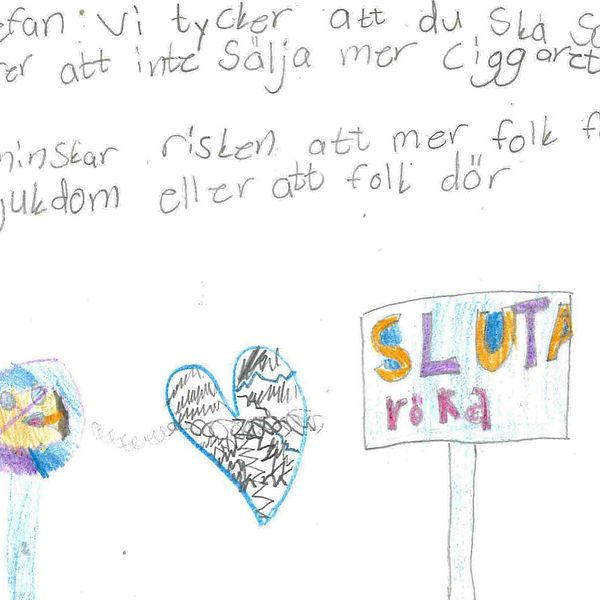 efan: Vi tycker att du ska se
rer att inte Sälja mer Ciggaret
minskar risken att mer folk f
jukdom eller att folk dör
SLUTA
röka